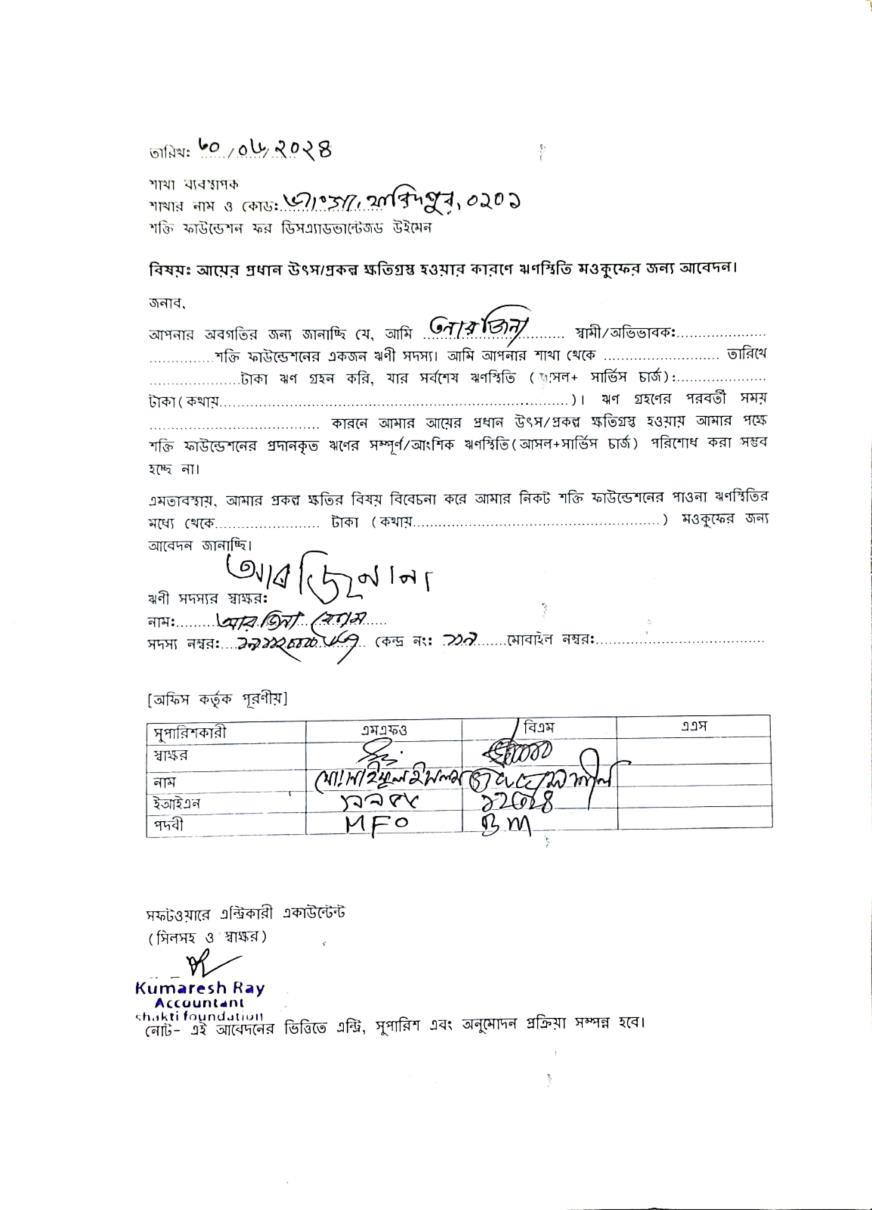 তারিখ: ৩০/০৬/২০২৪
শাখা ব্যবস্থাপক
শাখার নাম ও কোড: ভাংগা, ফরিদপুর, ০২০১
শক্তি ফাউন্ডেশন ফর ডিসএ্যাডভান্টেজড উইমেন
বিষয়: আয়ের প্রধান উৎস/প্রকল্প ক্ষতিগ্রস্ত হওয়ার কারণে ঋণস্থিতি মওকুফের জন্য আবেদন।
জনাব,
আপনার অবগতির জন্য জানাচ্ছি যে, আমি আরজিনা .......... স্বামী/অভিভাবক:....................
..............শক্তি ফাউন্ডেশনের একজন ঋণী সদস্য। আমি আপনার শাখা থেকে .......................... তারিখে
....................টাকা ঋণ গ্রহন করি, যার সর্বশেষ ঋণস্থিতি (আসল+ সার্ভিস চার্জ):....................
টাকা(কথায়................................................................................)। ঋণ গ্রহণের পরবর্তী সময়
...................................... কারনে আমার আয়ের প্রধান উৎস/প্রকল্প ক্ষতিগ্রস্ত হওয়ায় আমার পক্ষে
শক্তি ফাউন্ডেশনের প্রদানকৃত ঋণের সম্পূর্ণ/আংশিক ঋণস্থিতি(আসল+সার্ভিস চার্জ) পরিশোধ করা সম্ভব
হচ্ছে না।
এমতাবস্থায়, আমার প্রকল্প ক্ষতির বিষয় বিবেচনা করে আমার নিকট শক্তি ফাউন্ডেশনের পাওনা ঋণস্থিতির
মধ্যে থেকে....................... টাকা (কথায়........................................................) মওকুফের জন্য
আবেদন জানাচ্ছি।
ঋণী সদস্যর স্বাক্ষর:
নাম:.........আরজিনা বেগম.....
সদস্য নম্বর: কেন্দ্র নং: মোবাইল নম্বর:......................................
[অফিস কর্তৃক পূরণীয়]
সুপারিশকারী এমএফও বিএম এএস
স্বাক্ষর
নাম
ইআইএন
পদবী MFO BM
সফটওয়ারে এন্ট্রিকারী একাউন্টেন্ট
(সিলসহ ও স্বাক্ষর)
Kumaresh Ray
Accountant
shakti foundation
নোট- এই আবেদনের ভিত্তিতে এন্ট্রি, সুপারিশ এবং অনুমোদন প্রক্রিয়া সম্পন্ন হবে।